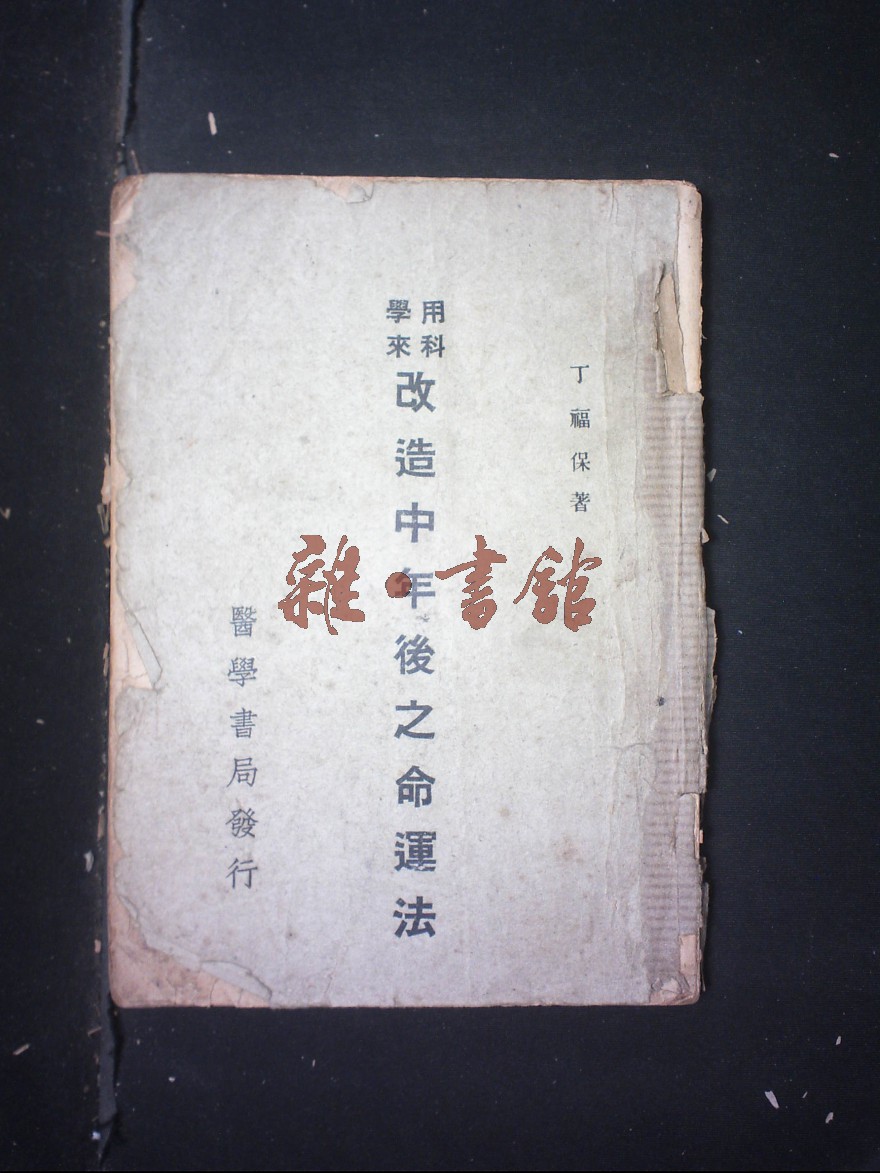 丁福保著
用科學來
改造中年後之命運法
醫學書局發行
雜·書館